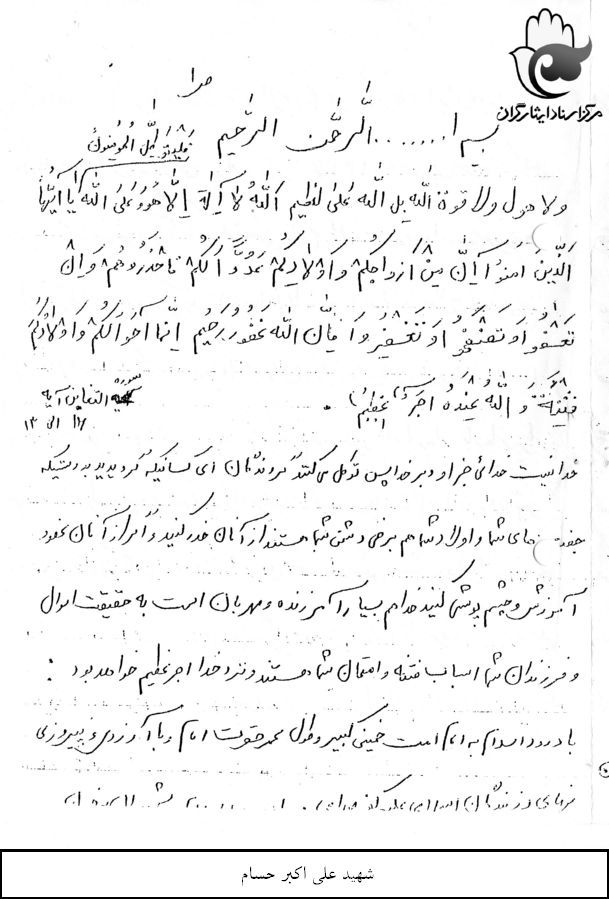 مرکز اسناد ایثارگران
بسم ا....... الرَّحمن الرَّحیم
فلیتوکل المؤمنون
ولا هول ولا قوة اللّه بل اللّه علی لظیم اللّه لا اله الّا هو و علی اللّه یا ایّها
الّذین امنوا انّ من ازواجکم و اولادکم عدوّاً لکم فاحذروهم و ان
تعفوا و تصفحوا و تغفروا فانّ اللّه غفور رحیم انّما اموالکم و اولادکم
فتنة و اللّه عنده اجر عظیم .
سوره التغابن آیه
۱۳ الی
خدا نیست خدائی جز او و بر خدا پس توکل می کنند گروندگان ای کسانیکه گرویدید بدرستیکه
جفت های شما و اولاد شما هم برخی دشمن شما هستند از آنان حذر کنید و اگر از آنان عفود
آموزش و چشم پوشی کنید خدا هم بسیار آمرزنده و مهربان است به حقیقت اموال
و فرزندان شما اسباب فتنه و امتحان شما هستند و نزد خدا اجر عظیم خواهد بود :
با درود و سلام به امام امت خمینی کبیر و طول عمر حضرت امام و با آرزوی پیروزی
شهید علی اکبر حسام